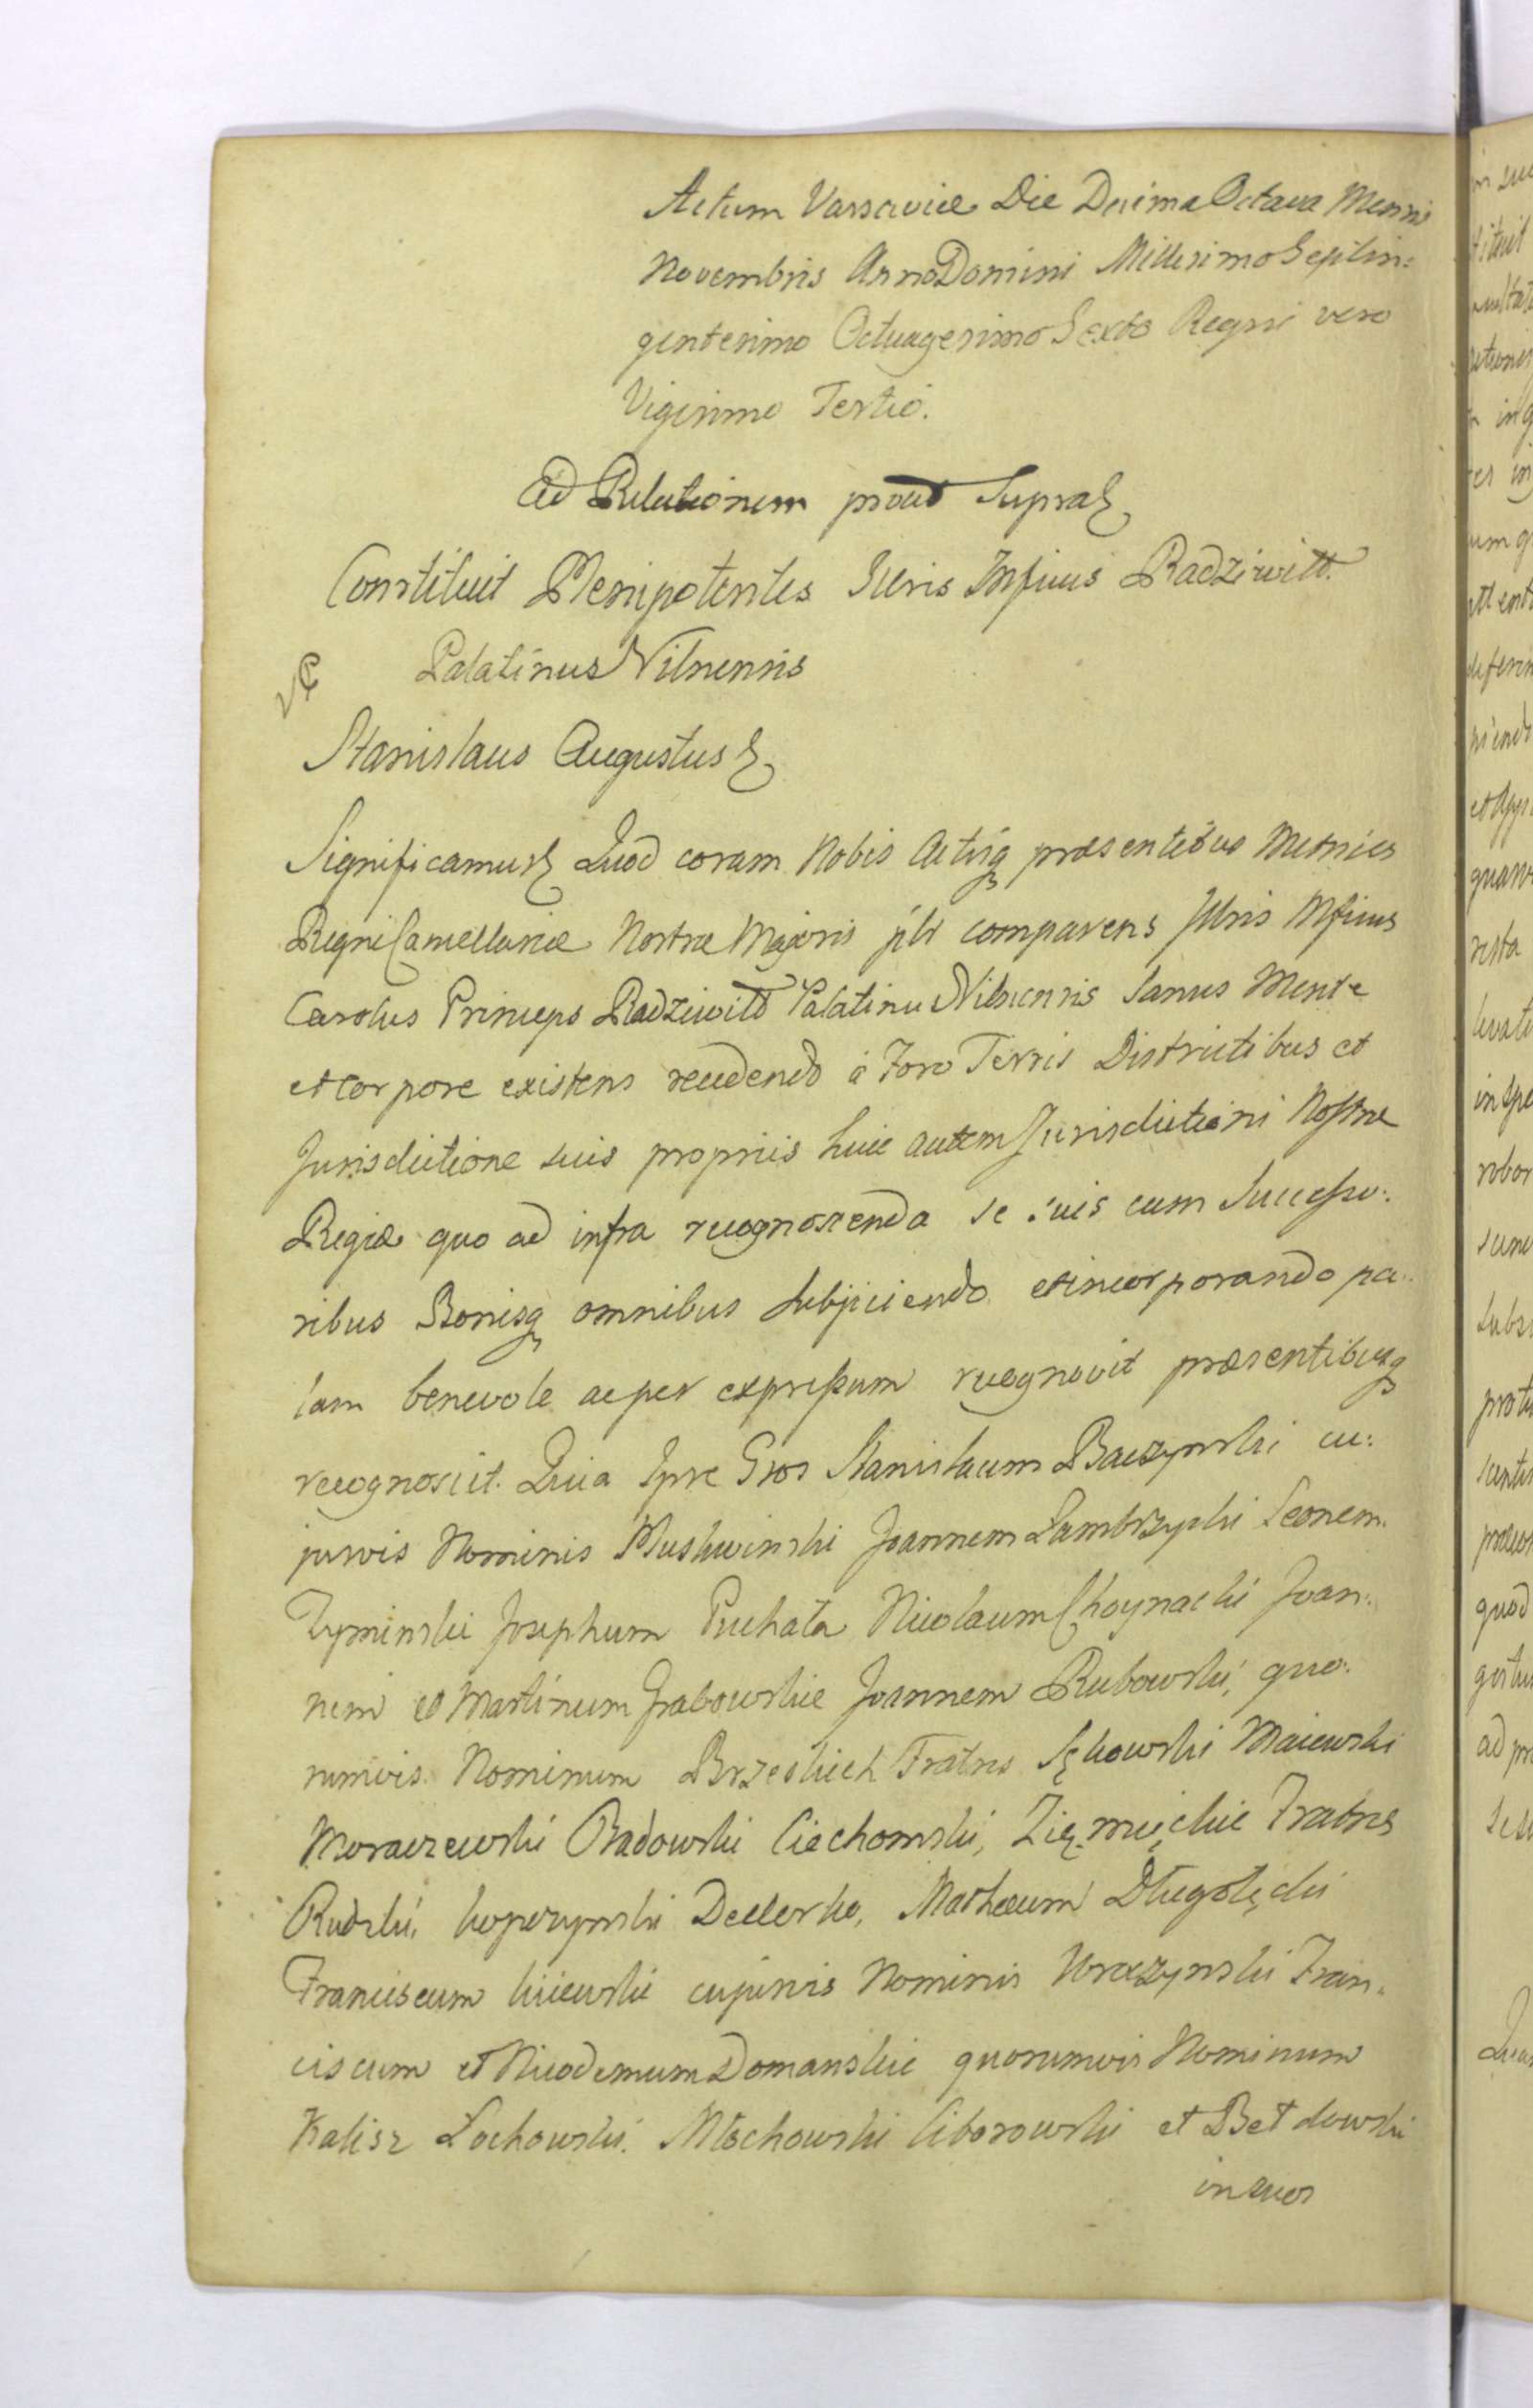 Actum Varsaviæ Die Decima Octava Mensis
Novembris Anno Domini Millesimo Septin:
gentesimo Octuagesimo Sexto Regni vero
Vigesimo Tertio.
Ad Relationem prout Supra
Constituit Plenipotentes Illris Mficus Radziwiłł
Palatinus Vilnensis
Stanislaus Augustus
Significamus Quod coram Nobis Actisq præsentibus Metrices
Regni Cancellariæ Nostræ Majoris plr comparens Illris Mficus
Carolus Princeps Radziwiłł Palatinu Vilnensis Sanus Mente
et Corpore existens recedendo à Foro Terris Districtibus et
Jurisdictione suis propriis huic autem Jurisdictioni Nostræ
Regiæ quo ad infra recognoscenda se suis cum Successo:
ribus Bonisq omnibus Subjiciendo et incorporando pa:
lam benevole ac per expressum recognovit præsentibusq
recognoscit. Quia Ipse Gsos Stanislaum Baczynski cu:
jusvis Nominis Muskwinski Joannem Dambrzycki Leonem
Zyminski Josephum Puchała Nicolaum Choynacki Joan:
nem et Martinum Grabowskie Joannem Rubowski, quo:
rumvis Nominum Brzeskich Fratres Sękowski Maiewski
Moraczewski Radowski Ciechomski, Zięmięckie Fratres
Rudzki, kopczynski Dellerko, Mathæum Długołęcki
Franciscum kiiewski cujusvis Nominis Wroczynski Fran:
ciscum et Nicodemum Domanskie quorumvis Nominum
Kalisz Łochowski. Młochowski Ciborowski et Bełdowski
in suos